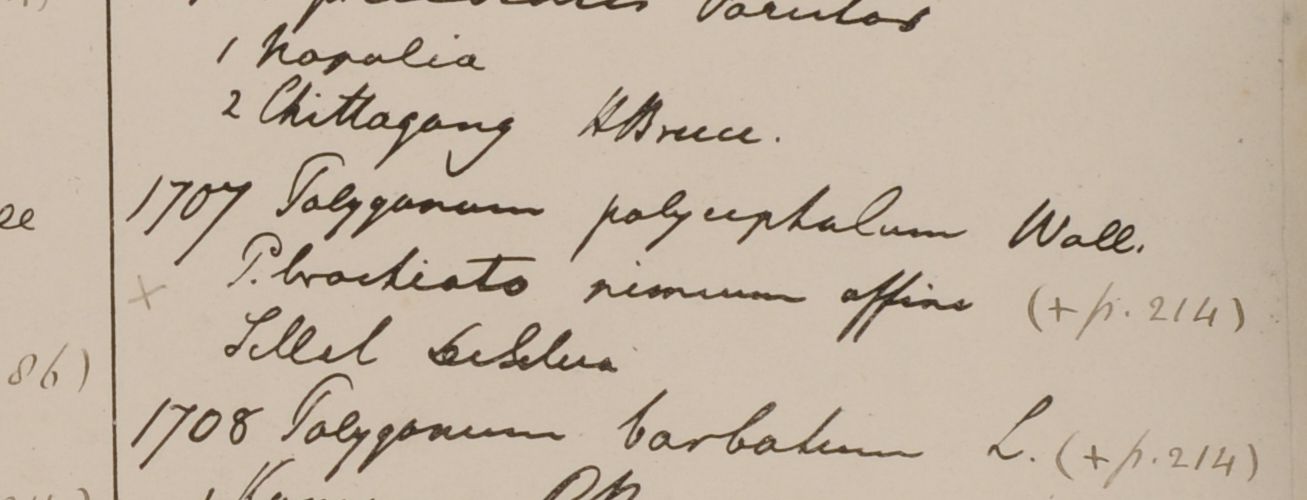 varietas
1 Napalia
2 Chittagong HBruce.
1707 Polygonum polycephalum Wall.
P. brachiato nimium affine (+ p. 214)
x
Sillet deSilva
86)
1708 Polygonum barbatum L. (+ p. 214)